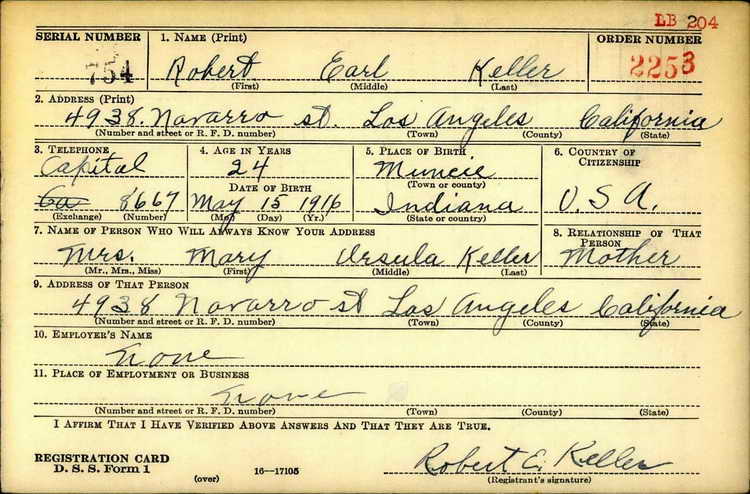 LB 204
SERIAL NUMBER 1. NAME (Print) ORDER NUMBER
754 Robert Earl Keller 2253
(First) (Middle) (Last)
2. ADDRESS (Print)
4938. Navarro st. Los Angeles California
(Number and street or R. F. D. number) (Town) (County) (State)
3. TELEPHONE 4. AGE IN YEARS 5. PLACE OF BIRTH 6. COUNTRY OF CITIZENSHIP
Capital 24 Muncie
DATE OF BIRTH (Town or county)
Ca 8667 May 15 1916 Indiana U.S.A.
(Exchange) (Number) (Mo.) (Day) (Yr.) (State or country)
7. NAME OF PERSON WHO WILL ALWAYS KNOW YOUR ADDRESS 8. RELATIONSHIP OF THAT PERSON
Mrs. Mary Ursula Keller Mother
(Mr., Mrs., Miss) (First) (Middle) (Last)
9. ADDRESS OF THAT PERSON
4938 Navarro st Los Angeles California
(Number and street or R. F. D. number) (Town) (County) (State)
10. EMPLOYER'S NAME
None
11. PLACE OF EMPLOYMENT OR BUSINESS
None
(Number and street or R. F. D. number) (Town) (County) (State)
I AFFIRM THAT I HAVE VERIFIED ABOVE ANSWERS AND THAT THEY ARE TRUE.
REGISTRATION CARD Robert E. Keller
D. S. S. Form 1 (over) 16—17105 (Registrant's signature)